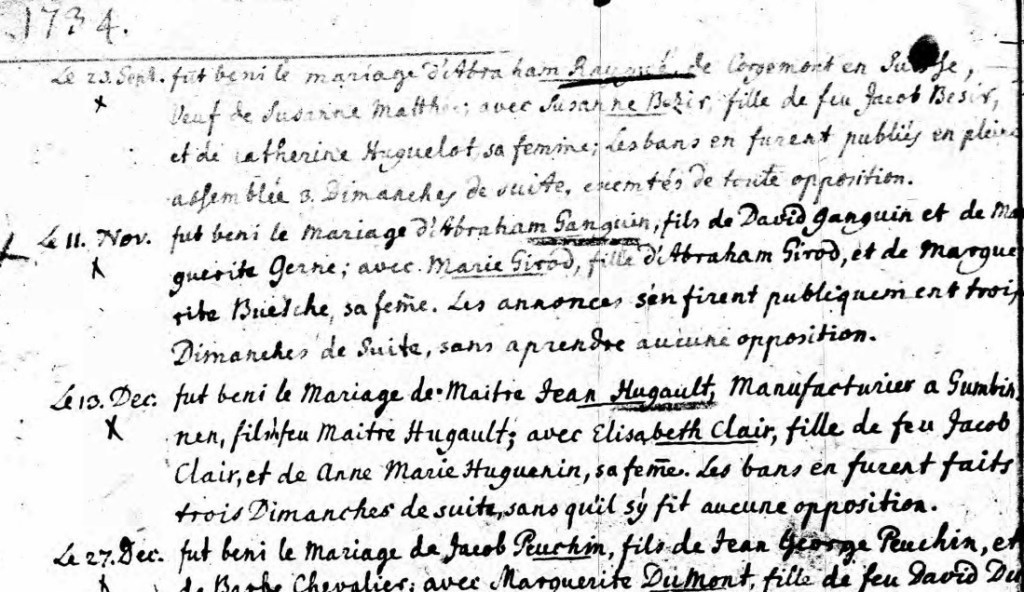 1734.
Le 23. Sept. fut beni le mariage d'Abraham de Corgemont en Suisse,
Veuf de Susanne Matthe; avec Susanne Bezir, fille de feu Jacob Besir,
et de Catherine Huguelot sa femme; Les bans en furent publiés en plein
assemblée 3. Dimanches de suite, exemtés de toute opposition.
Le 11. Nov. fut beni le mariage d'Abraham Ganguin, fils de David Ganguin et de Ma
guerite Gerne; avec Marie Girod, fille d'Abraham Girod, et de Margue
rite Buetche, sa feme. Les annonces s'en firent publiquement trois
Dimanches de suite, sans aprendre aucune opposition.
Le 13. Dec. fut beni le Mariage de Maitre Jean Hugault, Manufacturier a Gumbin
nen, fils feu Maitre Hugault; avec Elisabeth Clair, fille de feu Jacob
Clair, et de Anne Marie Huguenin, sa feme. Les bans en furent faits
trois Dimanches de suite, sans qu'il s'y fit aucune opposition.
Le 27. Dec. fut beni le Mariage de Jacob Peuchin, fils de Jean George Peuchin, et
de Barbe Chevalier; avec Marguerite DuMont, fille de feu David Du